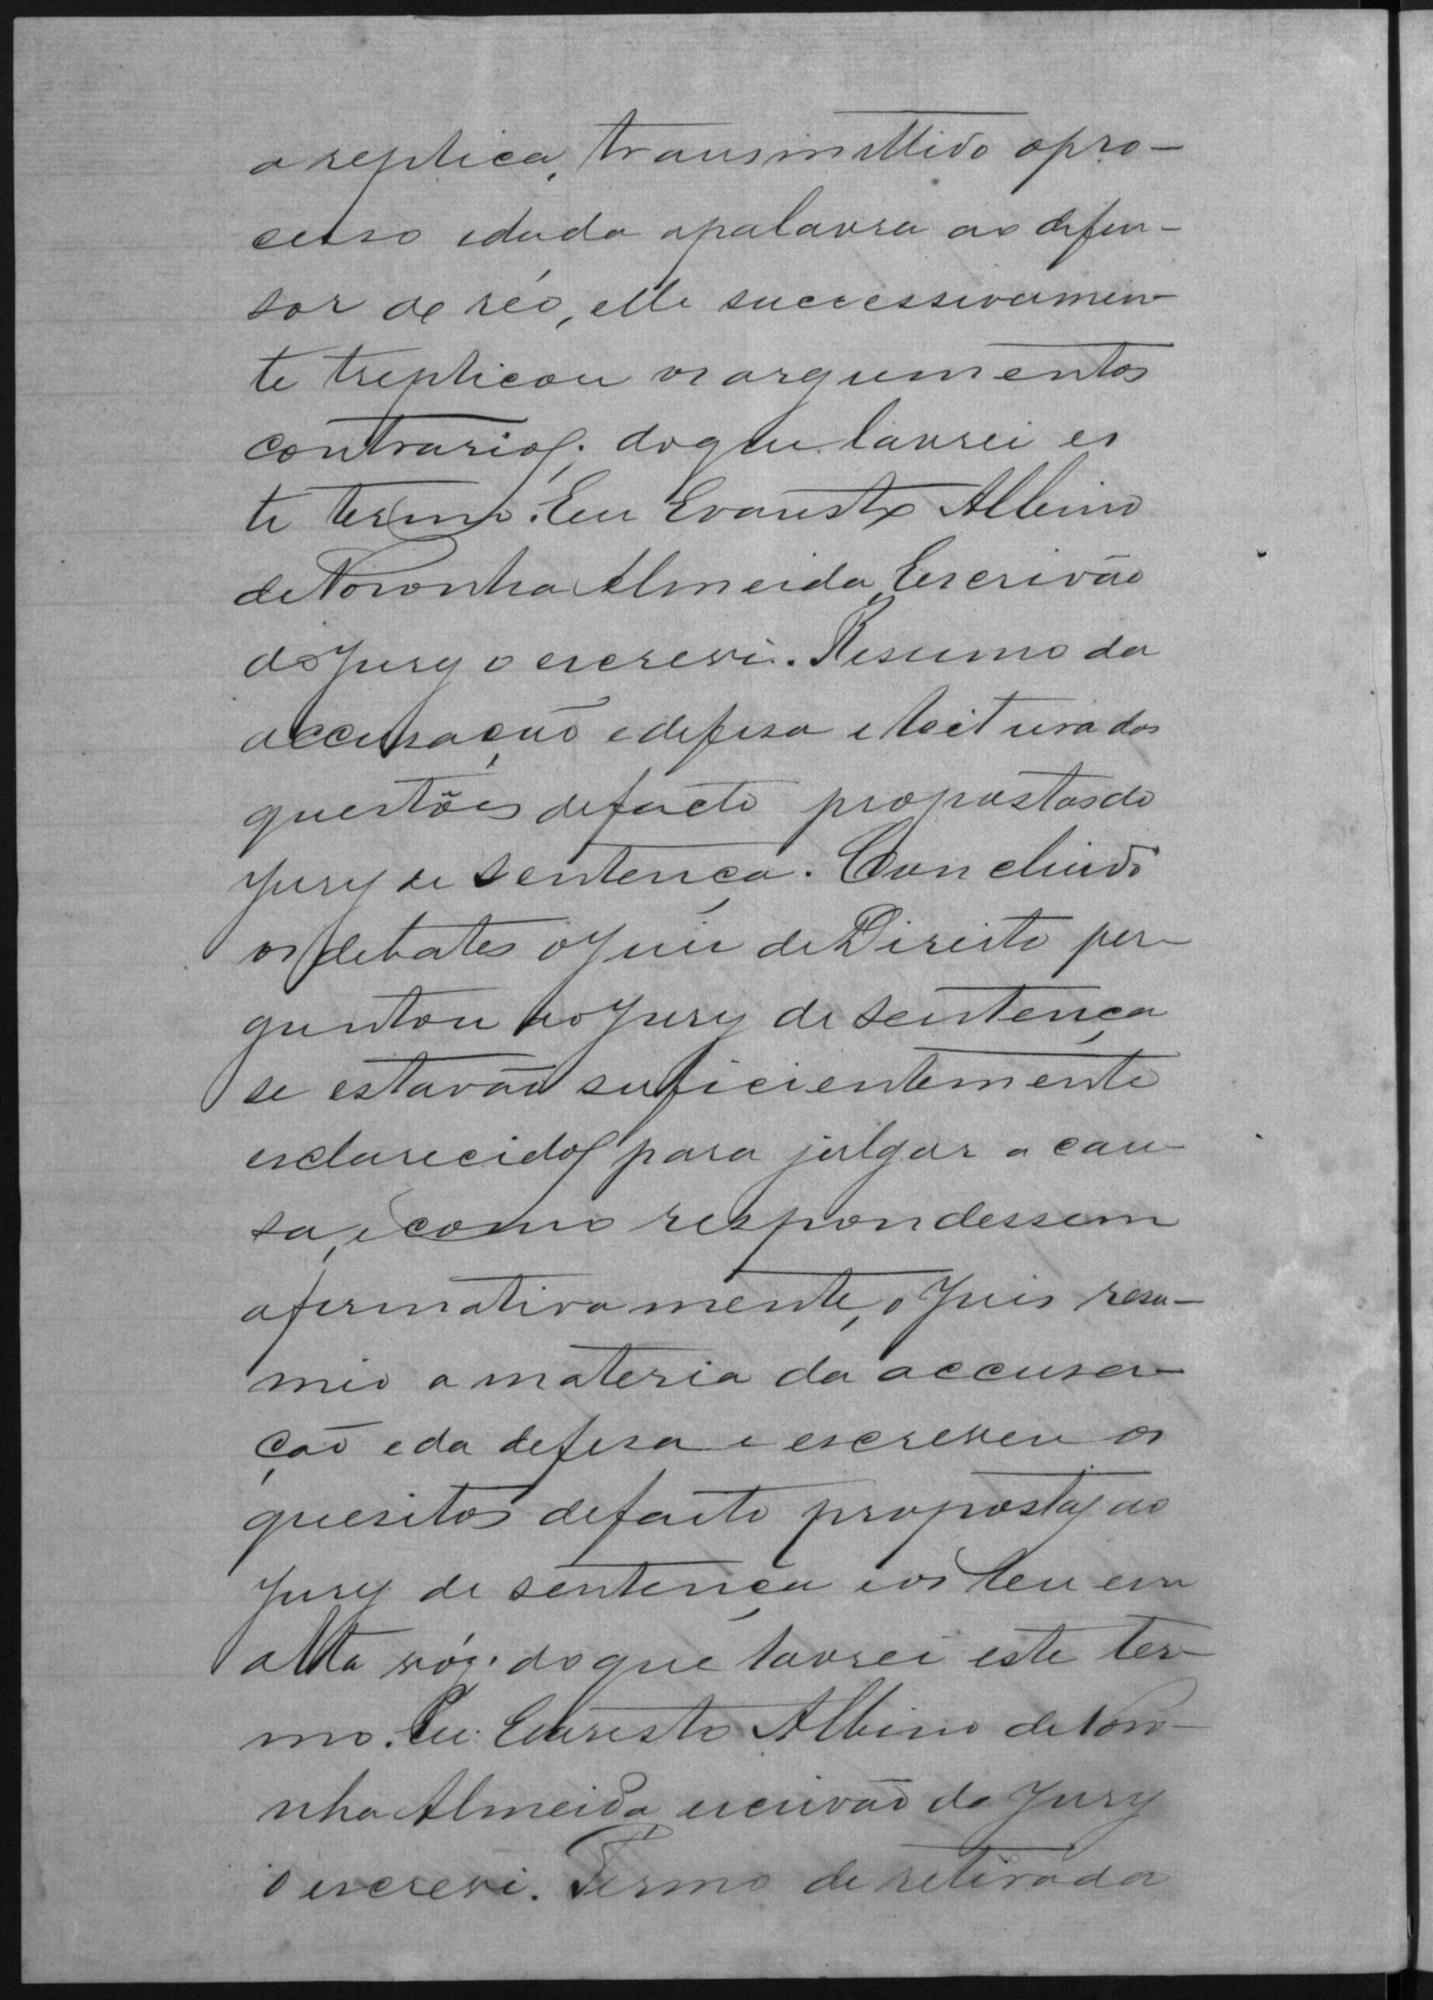 a replica, transmittido o pro-
cesso e dada a palavra ao defen-
sor do réo, elle successivamen-
te treplicou os argumentos
contrarios; do que lavrei es
te termo. Eu Evaristo Albino
de Noronha Almeida, Escrivão
do Jury o escrevi. Resumo da
accusação e defesa e leitura das
questões de facto propostas do
Jury de Sentença. Concluido
os debates o Juis de Direito per-
guntou ao Jury de Sentença
se estavão suficientemente
esclarecidos para julgar a cau-
sa, e como respondessem
afirmativamente, o Juis resu-
mio a materia da accusa-
ção e da defesa e escreveu os
quesitos de facto propostos ao
Jury de sentença e os leu em
alta vós; do que lavrei este ter-
mo. Eu Evaristo Albino de Noro-
nha Almeida, escrivão do Jury
o escrevi. Termo de retirada